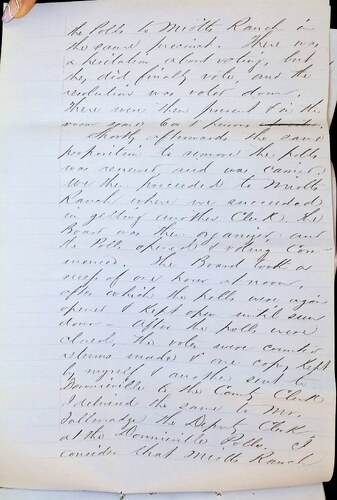 the Polls to Mialls Ranch in
the same precinct. There was
a hesitation about voting, but
they did finally vote, and the
resolution was voted down.
There were then present in the
room some 6 or 7 persons
Shortly afterwards the same
proposition to remove the polls
was renewed and was carried.
We then proceeded to Mialls
Ranch where we succeeded
in getting another Clerk. The
Board was then organized and
the Polls opened & voting Com-
menced. The Board took a
recess of one hour at noon,
after which the polls were again
opened & kept open until sun
down - After the polls were
closed, the votes were counted
returns made & one copy kept
by myself & another sent to
Downieville to the County Clerk
I delivered the same to Mr.
Tallmadge the Deputy Clerk,
at the Downieville Polls. I
consider that Mialls Ranch